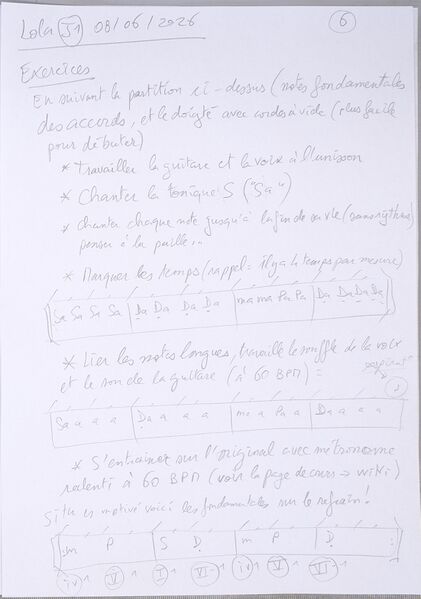 Lola J1 08/06/2026 6
Exercices
En suivant la partition ci-dessus (notes fondamentales
des accords, et le doigté avec cordes à vide (plus facile
pour débuter)
* Travailler la guitare et la voix à l'unisson
* Chanter la tonique S ("Sa")
* Chanter chaque note jusqu'à la fin de sa vie (sans rythme)
penser à la paille...
* Marquer les temps (rappel = il y a 4 temps par mesure)
Sa Sa Sa Sa Da Da Da Da ma ma Pa Pa Da Da Da Da
* Lier les notes longues, travaille le souffle de la voix
et le son de la guitare (à 60 BPM) =
Sa a a a Da a a a ma a Pa a Da a a a
* S'entrainer sur l'original avec métronome
ralenti à 60 BPM (voir la page de cours → wiki)
Si tu es motivé voici les fondamentales sur le refrain!
m P S D m P D
iv V I VI iv V VI